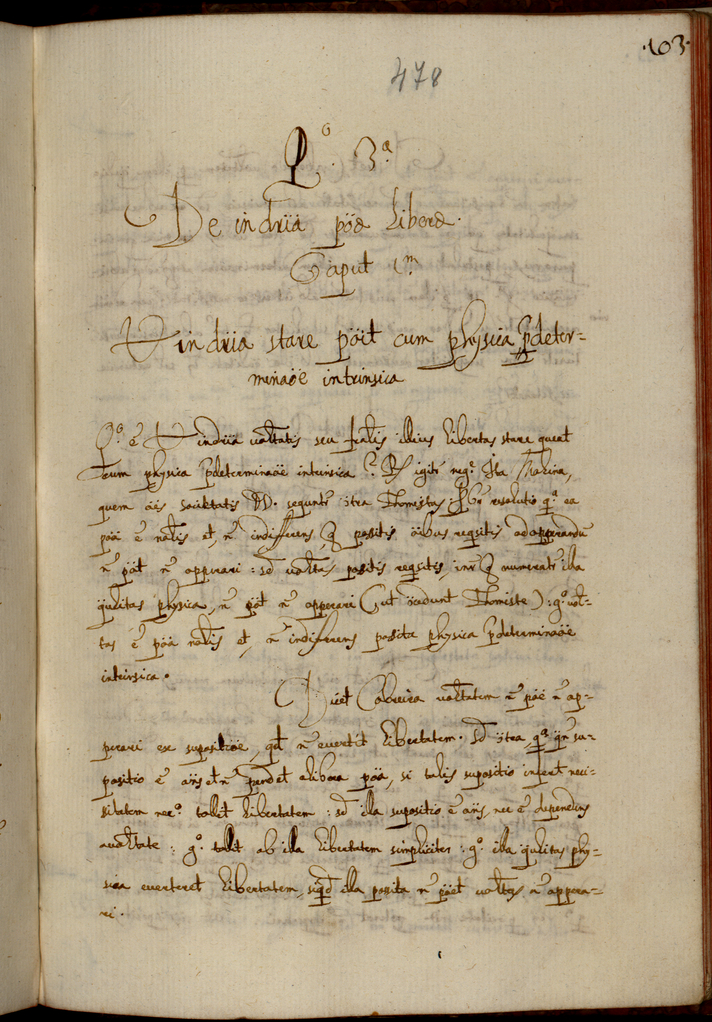 .103.
478
Q.º 3.ª
De indr̃ïa p̈ö̃æ liberæ.
Caput 1.m
V indr̃ïa stare p̈ö̃it cum physica p̃deter=
mina̅öe intrinsica
Q.º ẽ V indr̃ïa uol̃tatis seu illius libertas stare queat
cum physica p̃determina̅öe intrinsica? igit̃r neg.º Ita Molina,
quem o̅ẽs societatis D. sequnt̃r c̃tra Thomistas resolutio q.ª ea
p̈ö̃a ẽ nal̃is et ñ indifferens, q̃ positis o̅ibus reqsitis ad opperandũ
ñ p̈ö̃t ñ opperari: sd̃ uol̃tas positis reqsitis, int̃r q̃ numerat̃r illa
qũlitas physica, ñ p̈ö̃t ñ opperari (ut Thomiste): g.º uol̃=
tas ẽ p̈ö̃a nal̃is et ñ indifferens posita physica p̃determina̅öe
intrinsica.
Dicet Cabrera uol̃tatem ñ p̈ö̃e ñ op=
perari ex suposit̃iöe, qd̃ ñ euertit libertatem. Sd̃ c̃tra, q.ª qñ su=
positio ẽ añs et ñ pendet a libera p̈ö̃a, si talis supositio infert neci=
sitatem nec.º tollit libertatem: sd̃ illa supositio ẽ añs, nec ẽ dependens
a uol̃tate: g.º tollit ab illa libertatem simpliciter: g.º illa qũlitas phy=
sica euerteret libertatem, siqd̃ illa posita ñ p̈ö̃et uol̃tas ñ oppera=
ri.